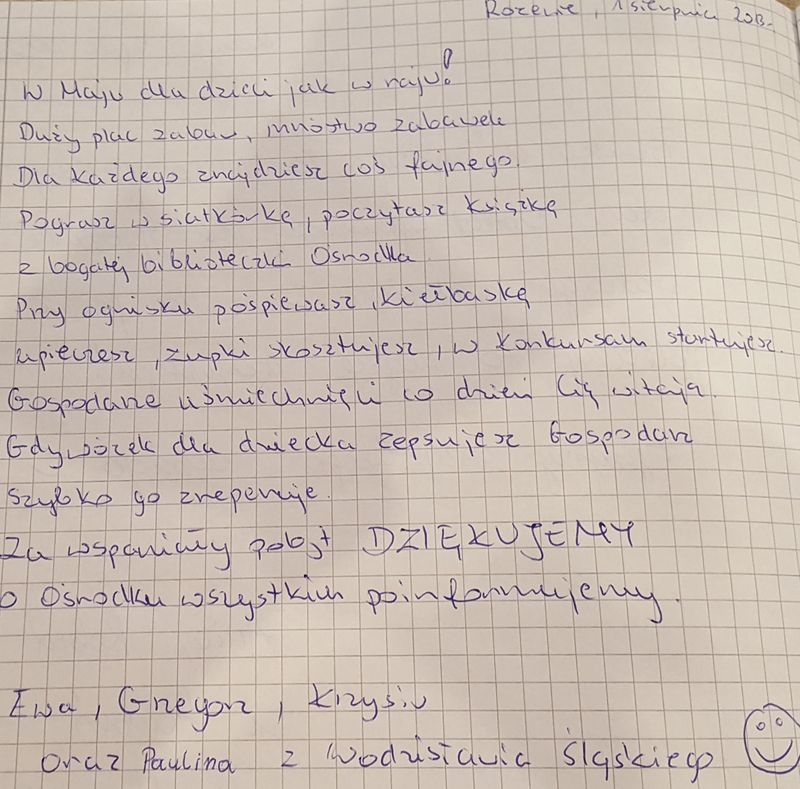 Rozewie, 1 sierpnia 2013.
W Maju dla dzieci jak w raju!
Duży plac zabaw, mnóstwo zabawek
Dla każdego znajdziesz coś fajnego.
Pograsz w siatkówkę, poczytasz książkę
z bogatej biblioteczki Ośrodka
Przy ognisku pośpiewasz, kiełbaskę
upieczesz, zupki skosztujesz, w konkursam startujesz.
Gospodarze uśmiechnięci co dzień Cię witają.
Gdy wózek dla dziecka zepsujesz Gospodarz
szybko go zreperuje.
Za wspaniały pobyt DZIĘKUJEMY
o Ośrodku wszystkich poinformujemy.
Ewa, Grzegorz, Krzysiu
oraz Paulina z Wodzisławia Śląskiego